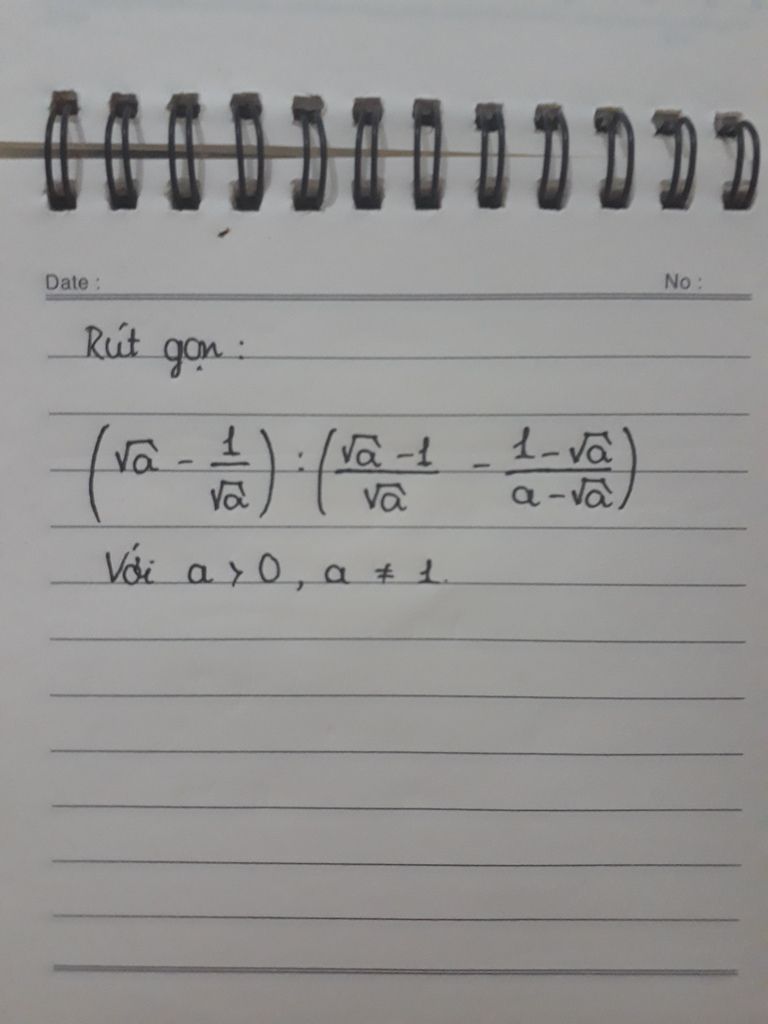 Date : No :
Rút gọn :
(√a - 1/√a) : (√a - 1/√a - 1 - √a/a - √a)
Với a > 0, a ≠ 1.